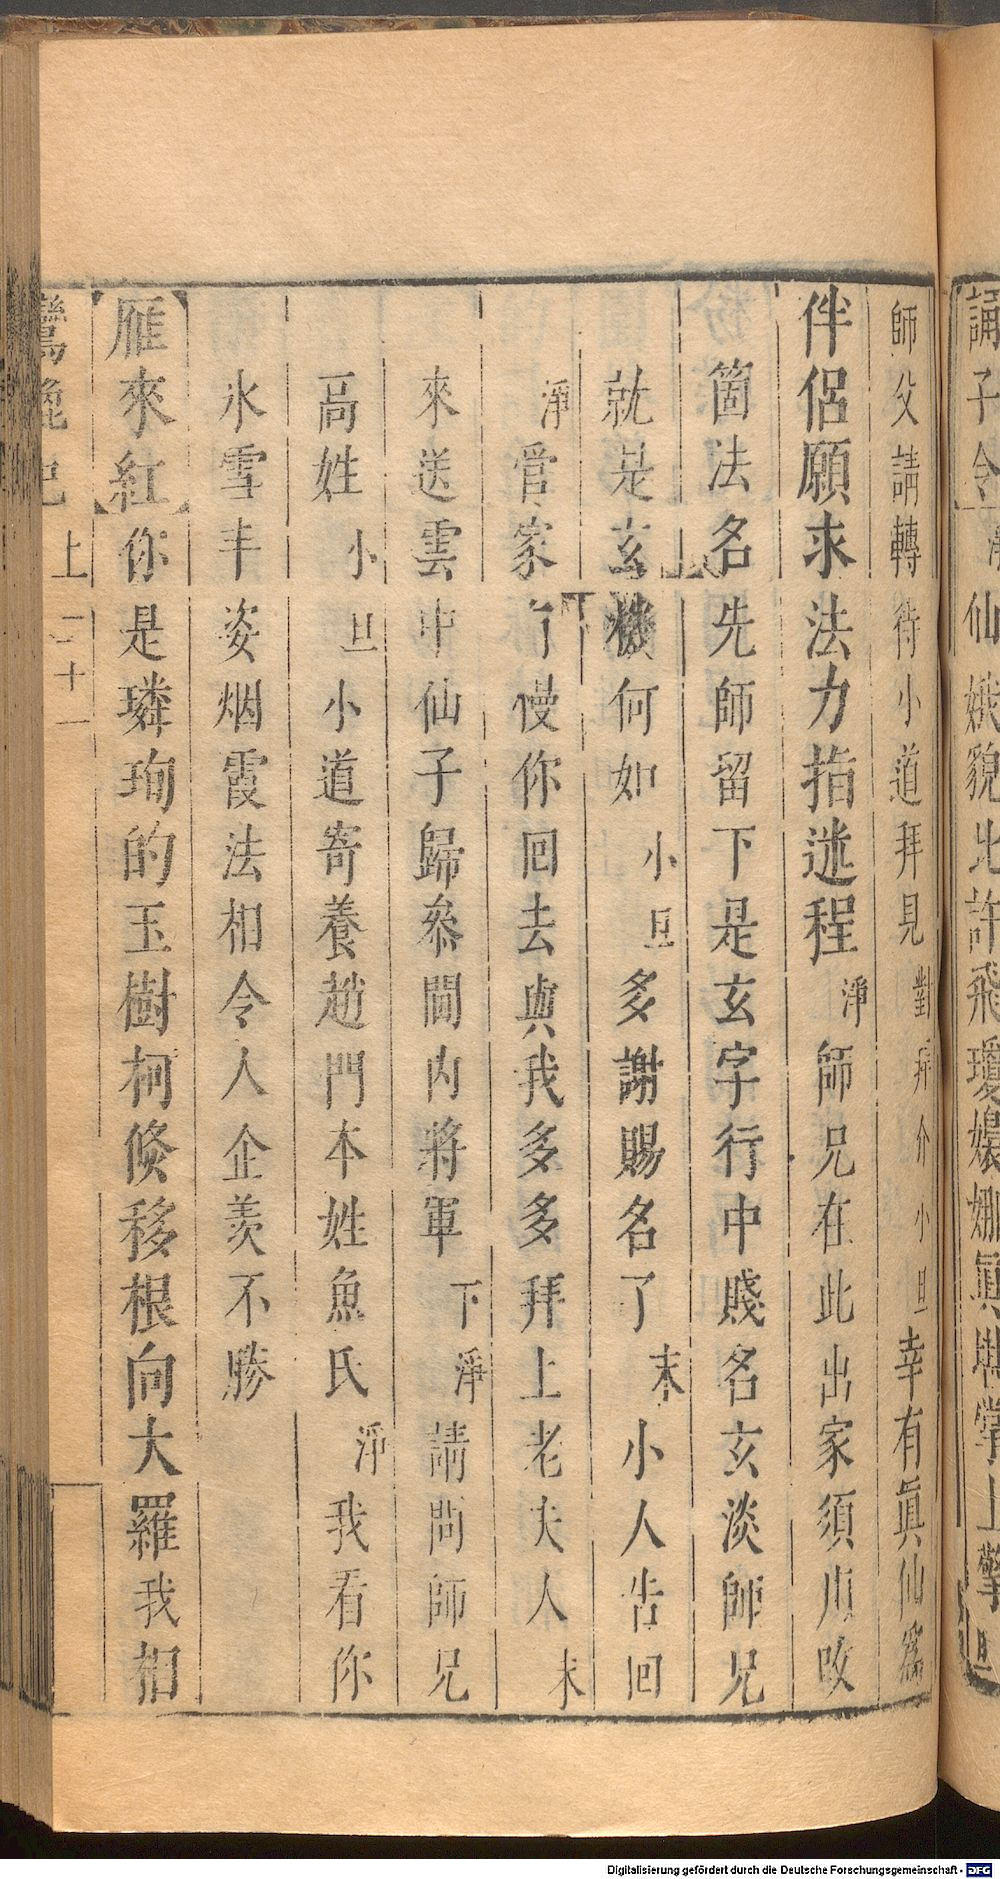 誦子令 仙娥貌比許飛瓊嬝娜眞堪掌上擎旦
師父請轉待小道拜見對拜介小旦幸有眞仙爲
伴侶願求法力指迷程淨師兄在此出家須用改
箇法名先師留下是玄字行中賤名玄淡師兄
就是玄機何如小旦多謝賜名了末小人告回
淨管家了慢你回去與我多多拜上老夫人末
來送雲中仙子歸叅閫內將軍下淨請問師兄
高姓小旦小道寄養趙門本姓魚氏淨我看你
氷雪丰姿烟霞法相令人企羨不勝
雁來紅你是璘珣的玉樹柯倐移根向大羅我相
鸞鎞記 上 二十一
Digitalisierung gefördert durch die Deutsche Forschungsgemeinschaft - DFG